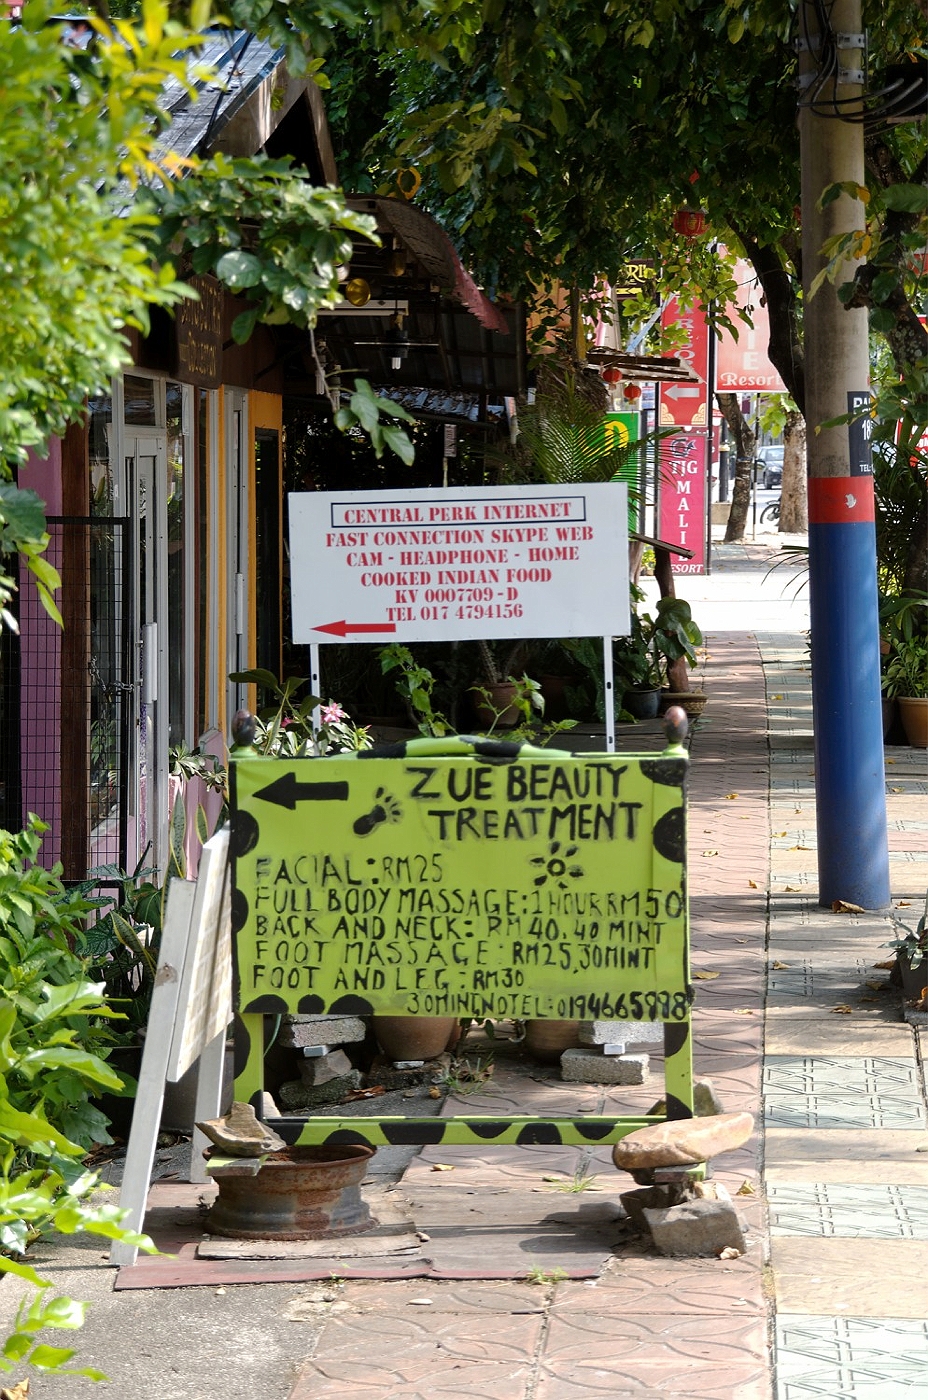 Resort
TIG
MALI
ESORT
TEL:
CENTRAL PERK INTERNET
FAST CONNECTION SKYPE WEB
CAM - HEADPHONE - HOME
COOKED INDIAN FOOD
KV 0007709 - D
TEL 017 4794156
ZUE BEAUTY
TREATMENT
FACIAL: RM25
FULL BODY MASSAGE: 1 HOUR RM50
BACK AND NECK: RM 40. 40 MINT
FOOT MASSAGE: RM25, 30MINT
FOOT AND LEG: RM30
30MIN